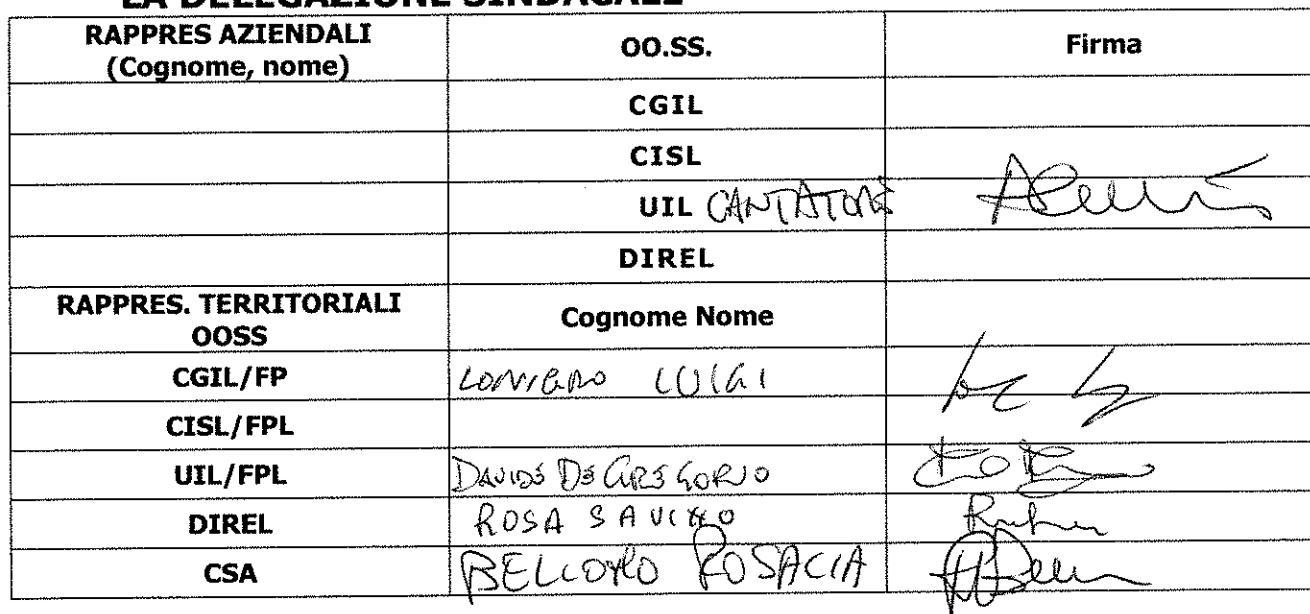 LA DELEGAZIONE SINDACALE
RAPPRES AZIENDALI
(Cognome, nome)
OO.SS.
Firma
CGIL
CISL
UIL CANTATORE
DIREL
RAPPRES. TERRITORIALI
OOSS
Cognome Nome
CGIL/FP
LUIGI
CISL/FPL
UIL/FPL
DAVIDE DE GREGORIO
DIREL
ROSA SAVINO
CSA
ROSALIA